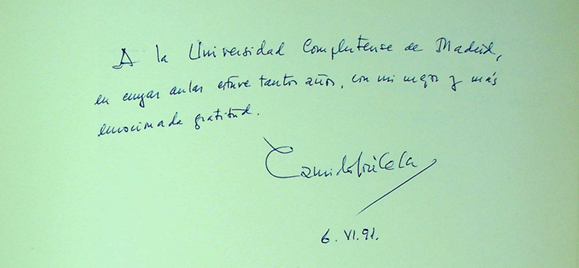 A la Universidad Complutense de Madrid,
en cuyas aulas estuve tantos años, con mi mejor y más
emocionada gratitud.
Camilo José Cela
6. VI. 91.